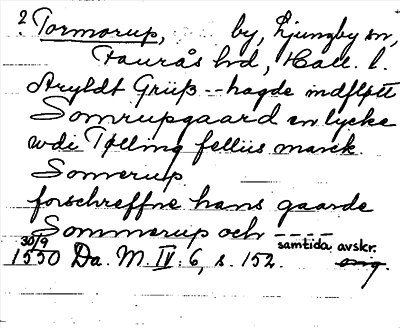 2 Tormorup, by, Ljungby sn,
Faurås hd, Hall. l.
Aryldt Grüß -- hagde indflØtt
Somrupgaard en lycke
wdi Tølling felliis marck.
Somerup
forschreffne hans gaarde
Sommerup och ----
30/9 samtida avskr.
1550 Da. M. IV: 6, s. 152. orig.